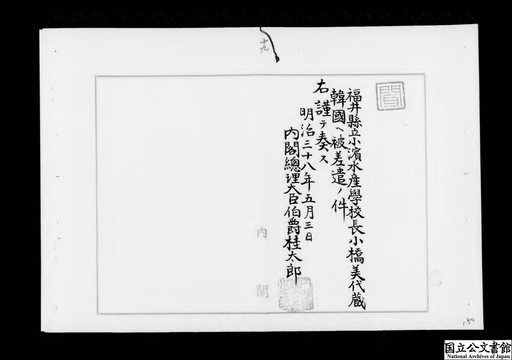 十九
福井縣立小濱水産學校長小橋美代藏
韓國ヘ被差遣ノ件
右謹テ奏ス
明治三十八年五月三日
内閣總理大臣伯爵桂太郎
内閣
国立公文書館
National Archives of Japan